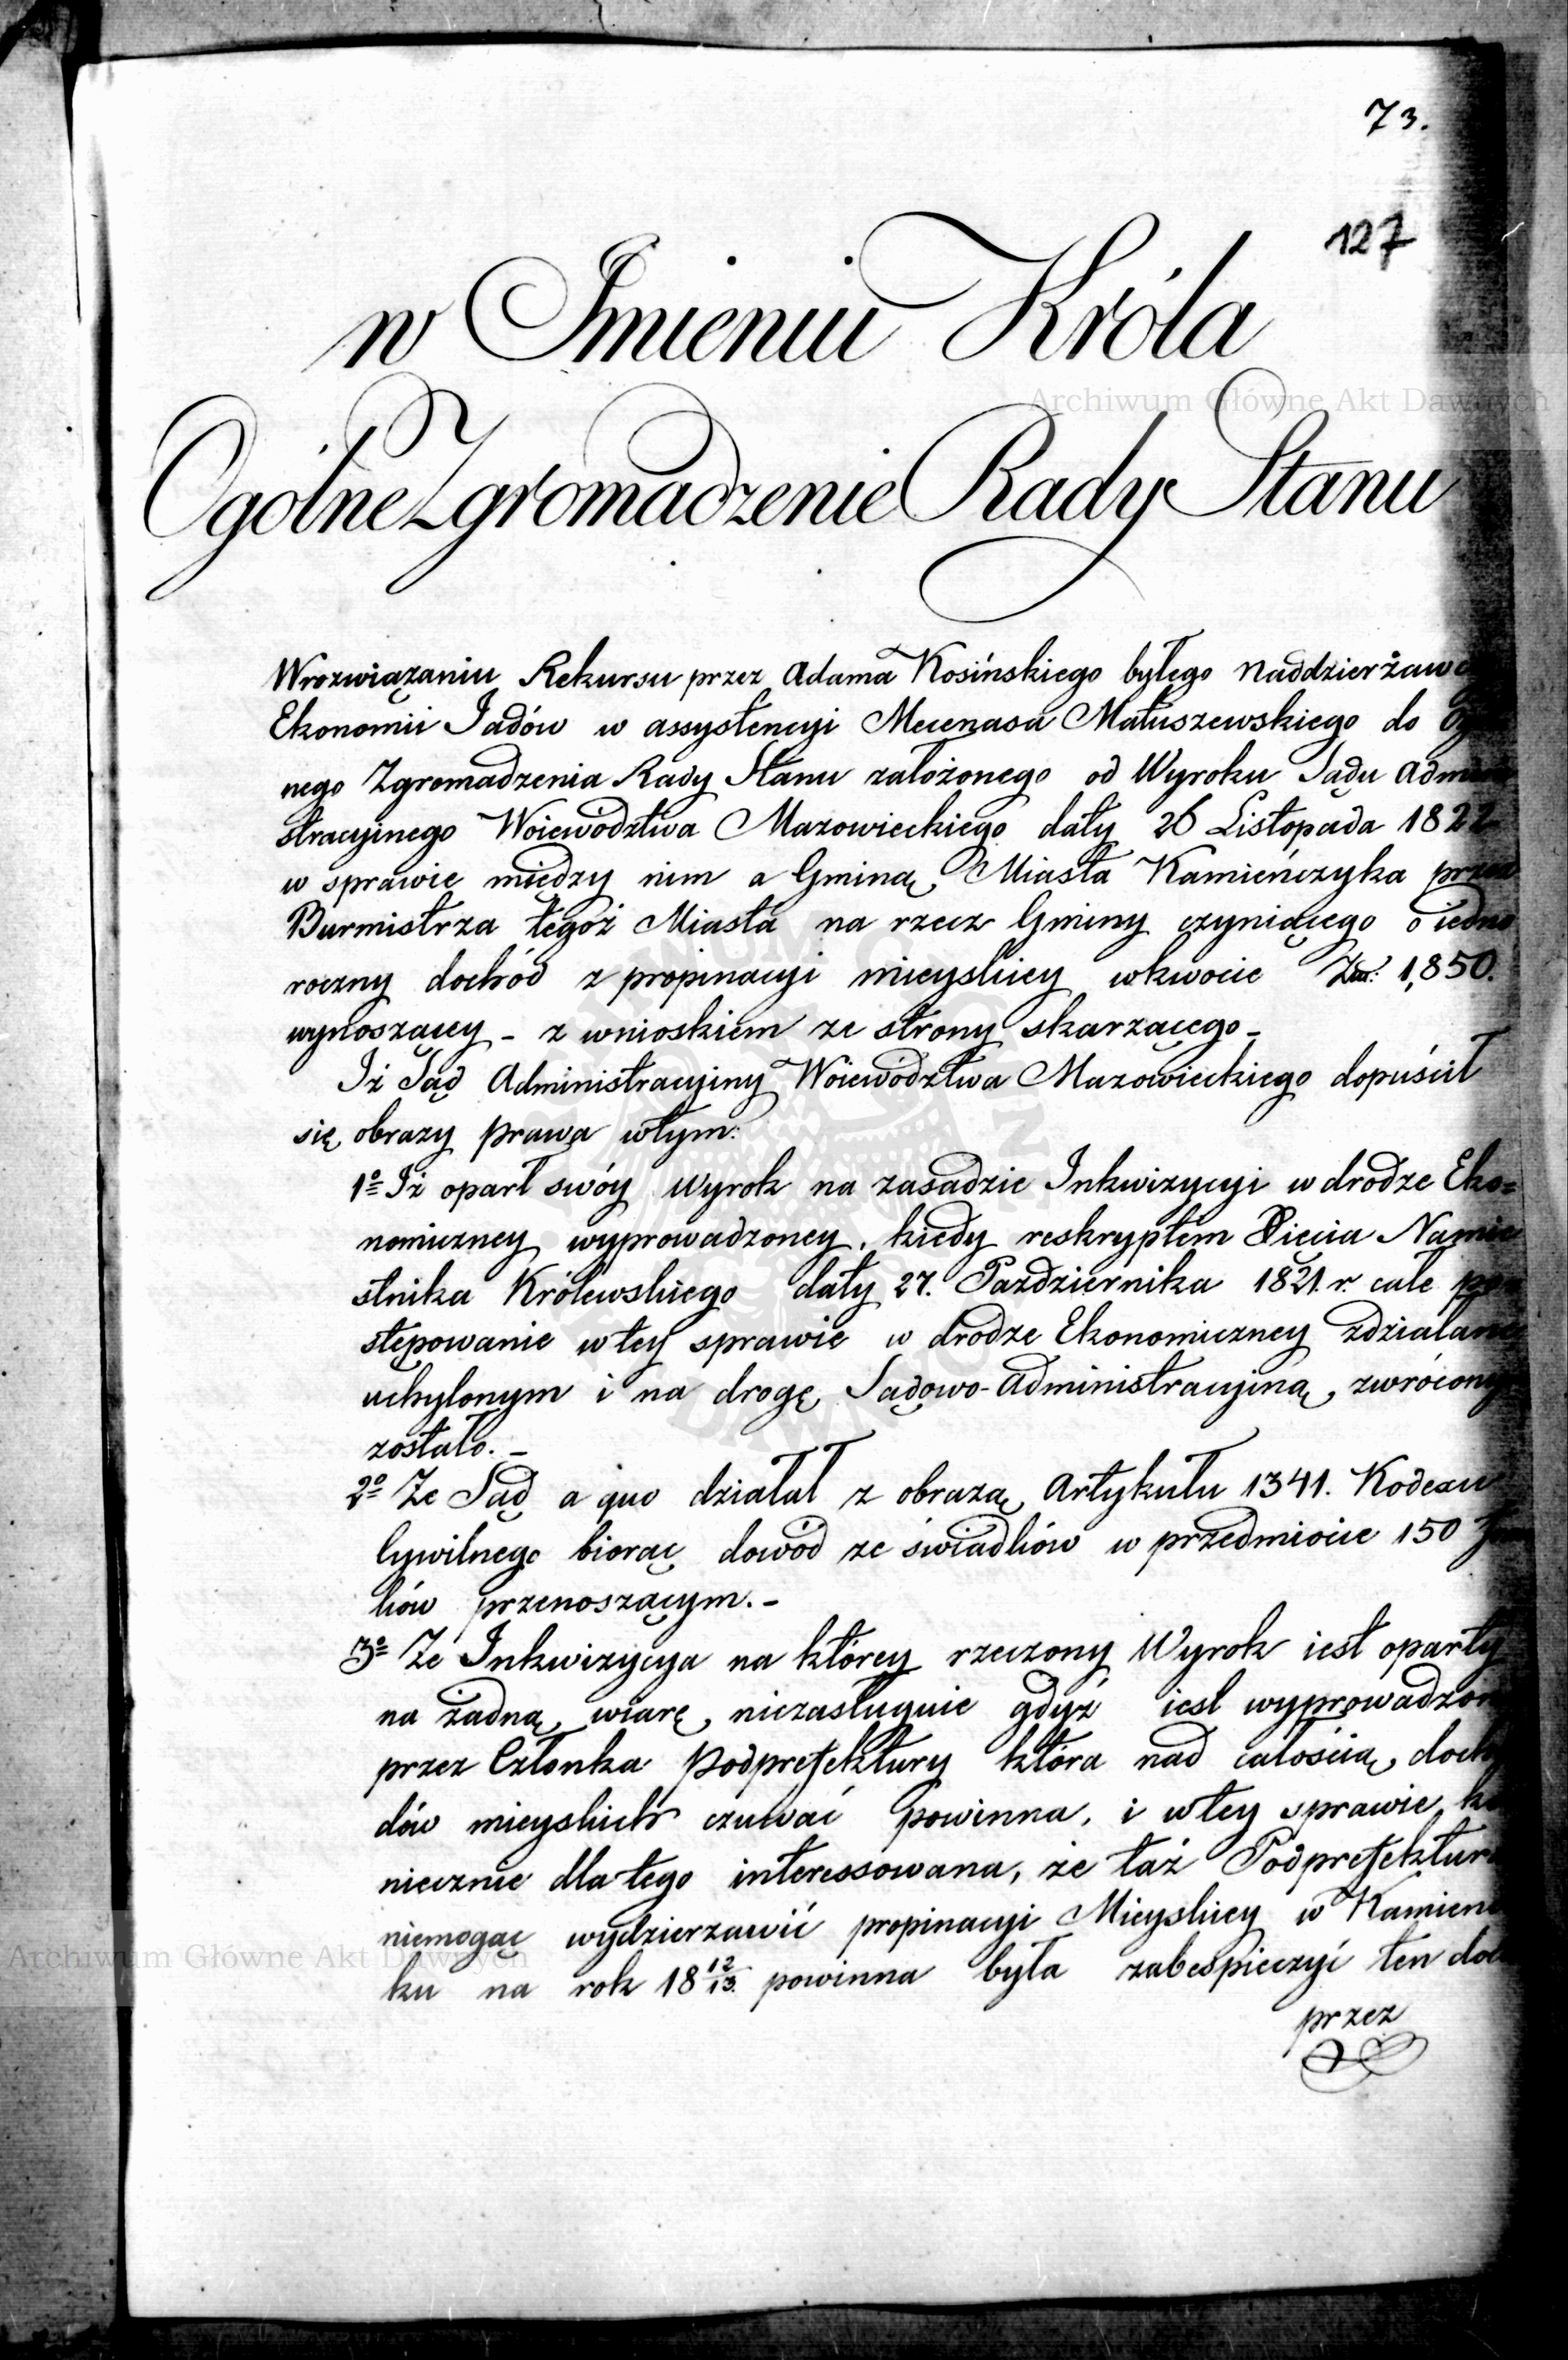 73.
127
w Imieniu Króla
Ogólne Zgromadzenie Rady Stanu
Archiwum Główne Akt Dawnych
Wrozwiązaniu Rekursu przez Adama Kosińskiego byłego Naddzierżaw
Ekonomii Jadów w assystencyi Mecenasa Matuszewskiego do Og
nego Zgromadzenia Rady Stanu założonego od Wyroku Sądu Admini
stracyinego Woiewództwa Mazowieckiego daty 26 Listopada 1822
w sprawie między nim a Gminą Miasta Kamieńczyka przez
Burmistrza tegoż Miasta na rzecz Gminy czyniącego o iedno
roczny dochód z propinacyi mieyskiey wkwocie 1,850.
wynoszącey - z wnioskiem ze strony skarzącego -
Iż Sąd Administracyiny Woiewództwa Mazowieckiego dopuścił
się obrazy prawa wtym:
1º Iż oparł swóy Wyrok na zasadzie Inkwizycyi w drodze Eko=
nomiczney wyprowadzoney, kiedy reskryptem Xięcia Namie
stnika Królewskiego daty 27. Pazdziernika 1821. r. całe po
stępowanie wtey sprawie w drodze Ekonomiczney zdziałane
uchylonym i na drogę Sądowo-Administracyiną zwrócony
zostało. -
2º Ze Sąd a quo działał z obrazą Artykułu 1341. Kodexu
Cywilnego biorąc dowód ze świadków w przedmiocie 150 fran
ków przenoszącym. -
3º Ze Inkwizycya na którey rzeczony Wyrok iest oparty
na żadną wiarę niezasługuie gdyż iest wyprowadzon
przez Członka Podprefektury która nad całością docho
dów mieyskich czuwać powinna, i wtey sprawie ko
niecznie dla tego interessowana, że taż Podprefektura
niemogąc wydzierzawić propinacyi Mieyskiey w Kamieńc
ku na rok 18 12/13. powinna była zabespieczyć ten doc
Archiwum Główne Akt Dawnych
przez